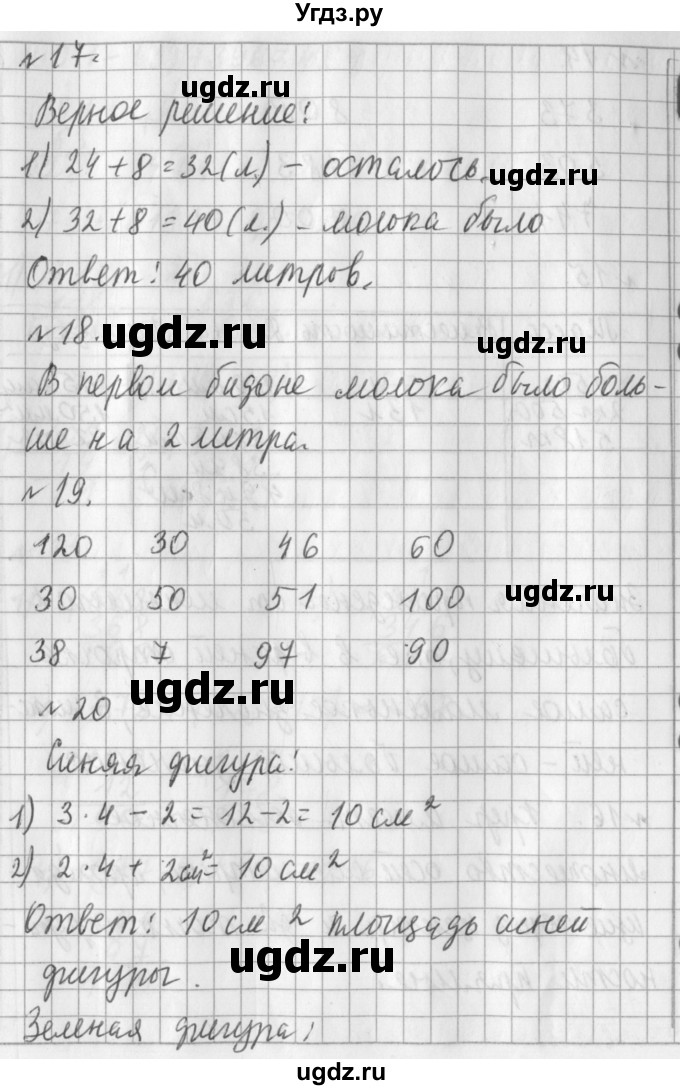 Угдз.ру
№17.
ugdz.ru
Верное решение:
1) 24+8=32(л.) – осталось.
ugdz.ru
2) 32+8=40(л.) – молока было
Ответ: 40 литров.
№18.
ugdz.ru
ugdz.ru
В первом бидоне молока было боль-
ше на 2 литра.
№19.
120 30 46 60
30 50 51 100
ugdz.ru
38 7 97 90
ugdz.ru
№20
Синяя фигура:
1) 3·4–2=12–2=10см²
2) 2·4+2см²=10см²
Ответ: 10см² площадь синей
фигуры.
ugdz.ru
Зеленая фигура:
ugdz.ru